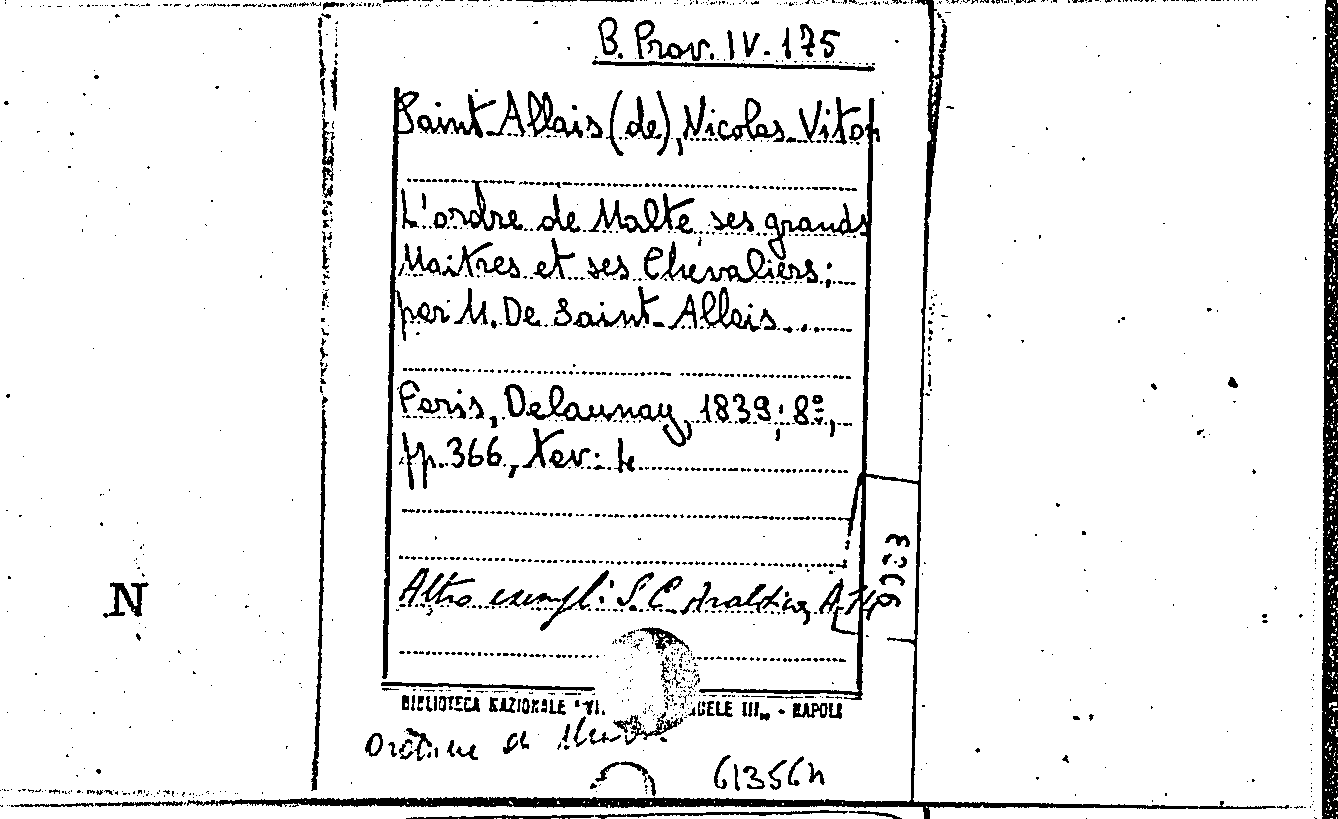 B. Prov. IV. 175
Saint-Allais (de), Nicolas-Viton
L'ordre de Malte ses grands
Maitres et ses Chevaliers;
par M. De Saint-Allais...
Paris, Delaunay, 1839; 8º,
pp. 366, tav. 4
Altro exempl: S.C. Araldica, A 14
N
BIBLIOTECA NAZIONALE "VI ELE III„ - NAPOLI
Ordine di
61356